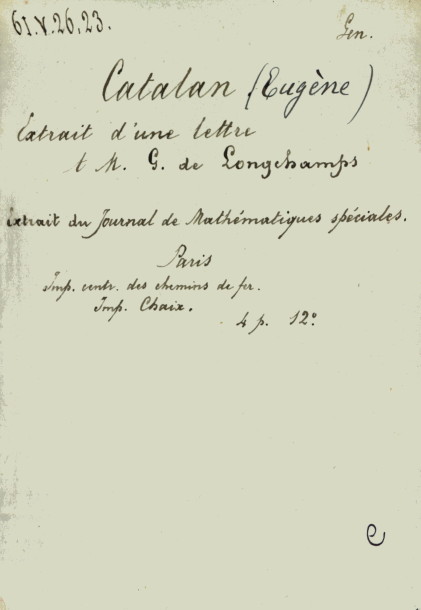 61.V.26,23.
Gen.
Catalan (Eugène)
Extrait d'une lettre
M. G. de Longchamps
Extrait du Journal de Mathématiques spéciales.
Paris
Imp. centr. des chemins de fer.
Imp. Chaix.
4 p. 12°
e